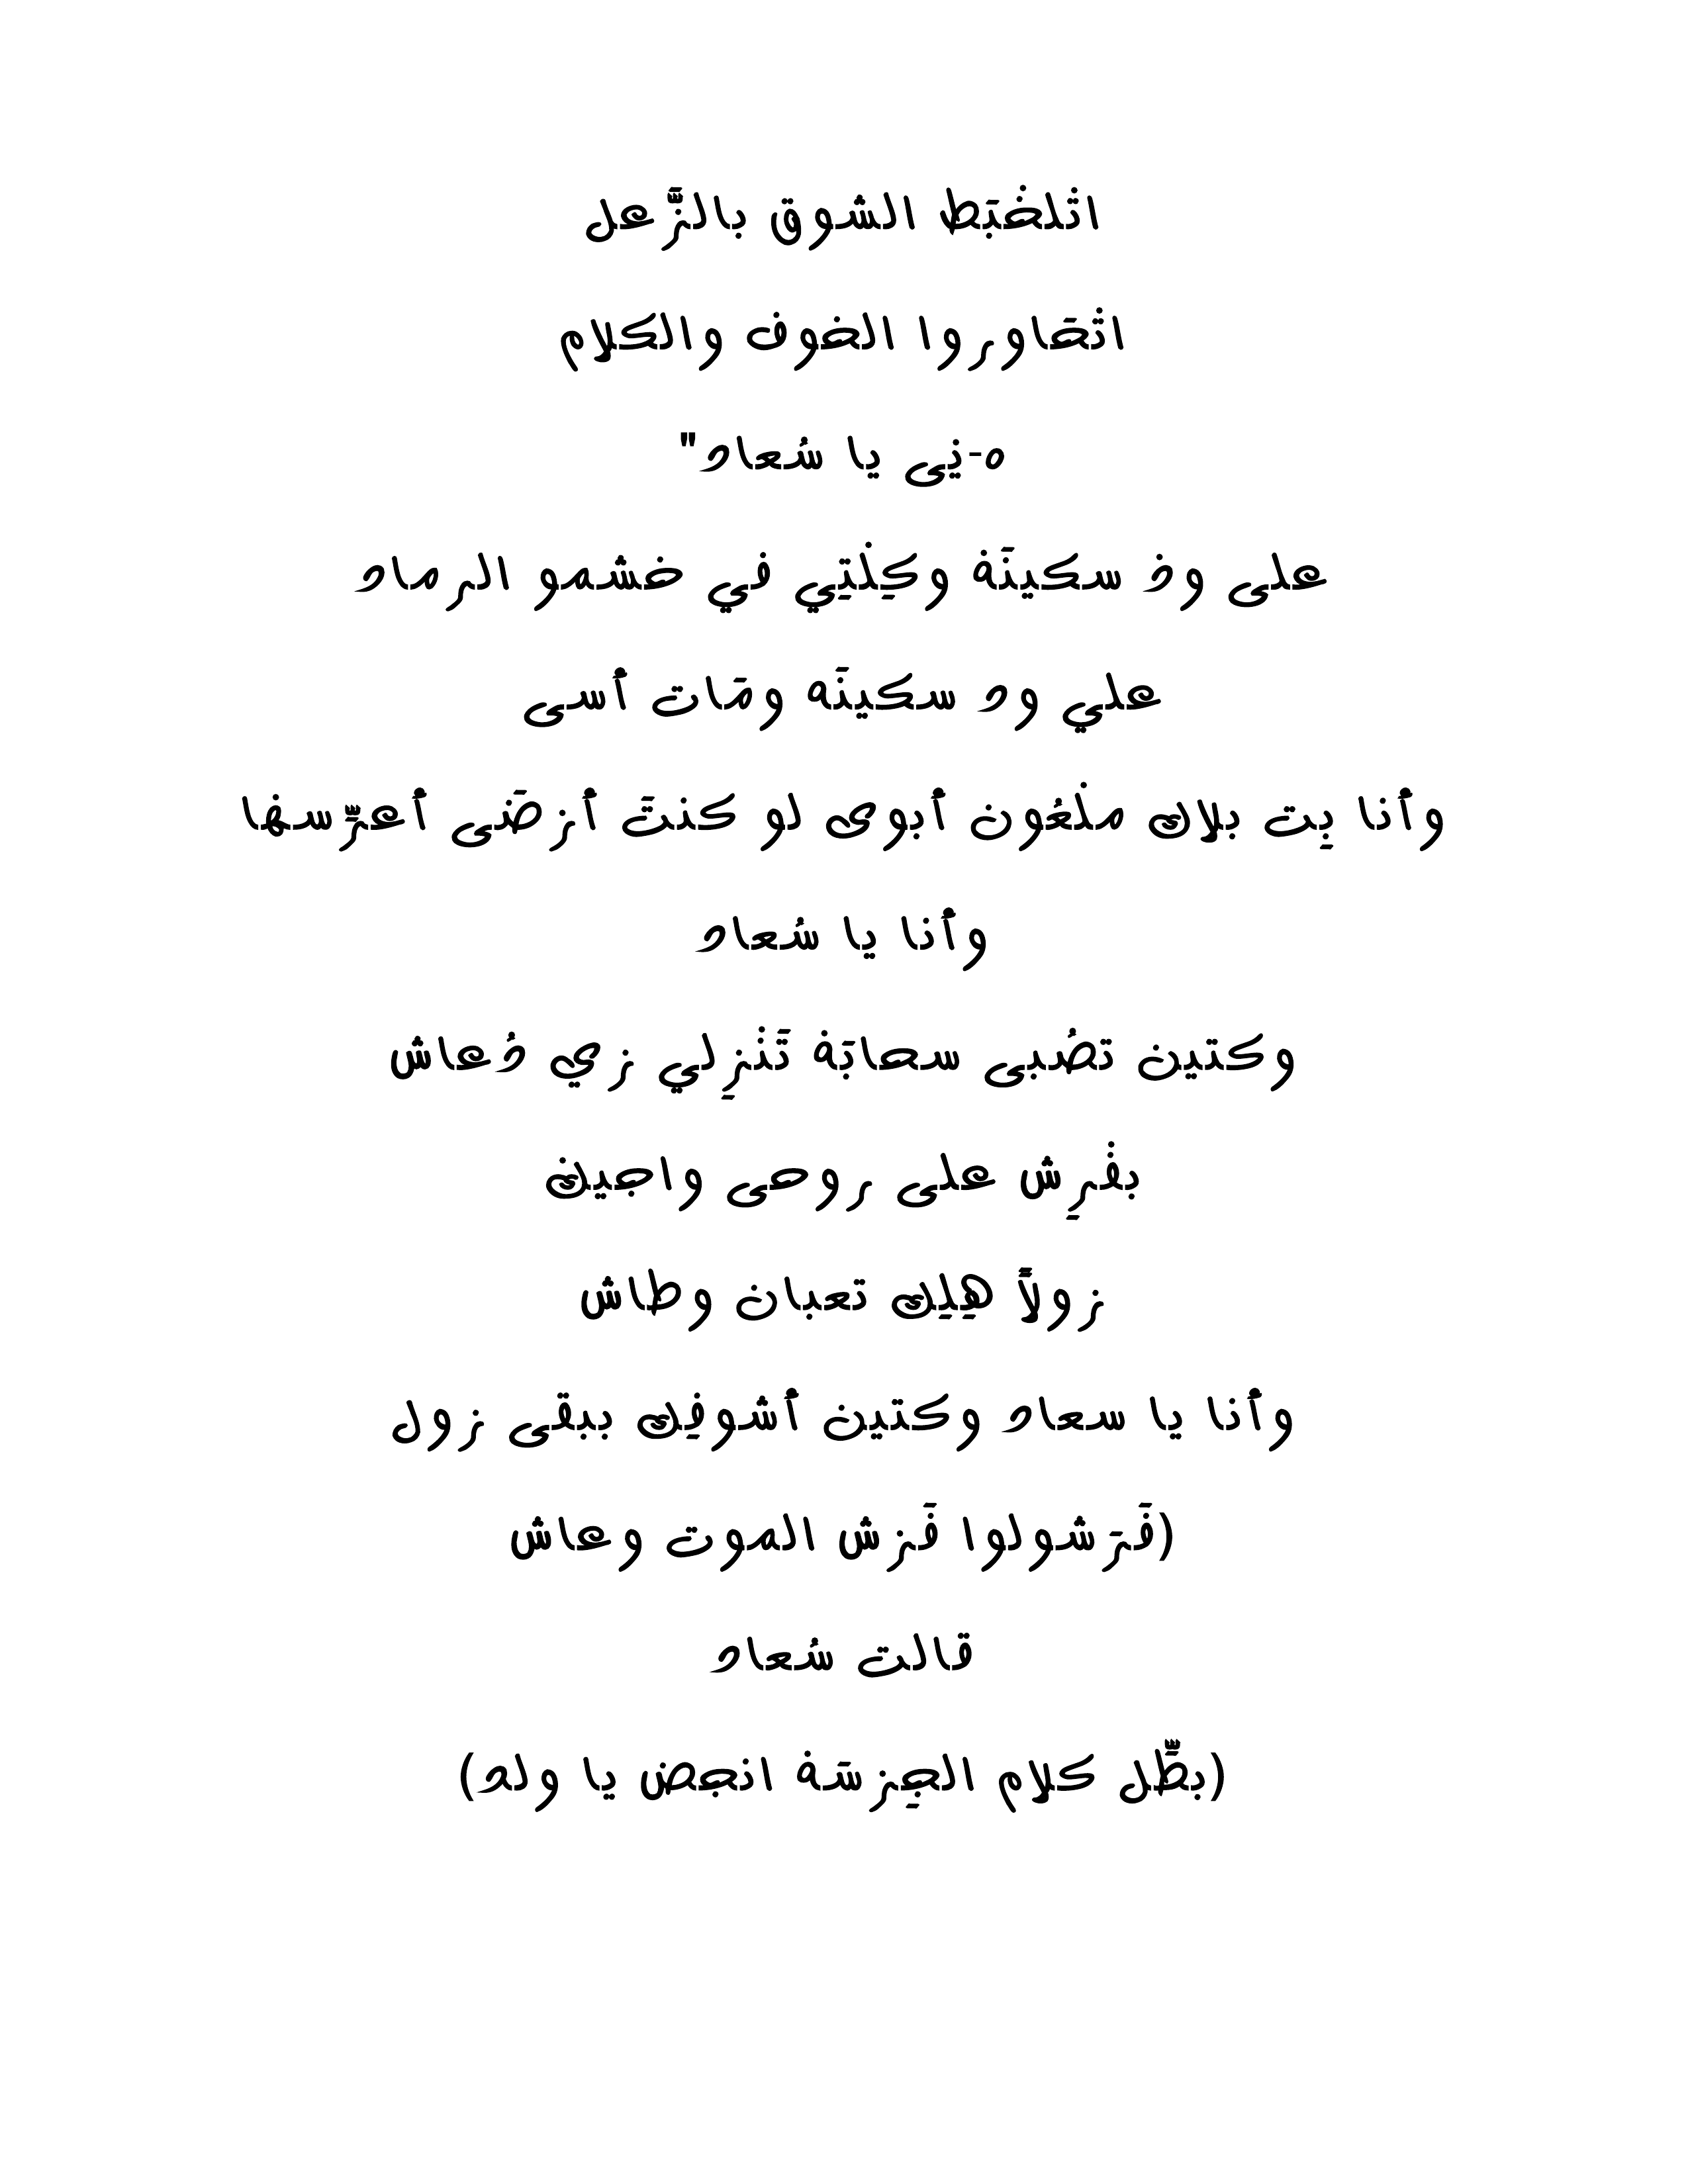 اتْلخْبَط الشوق بالزَّعل
اتْحَاوروا الخوف والكلام
ه-ذِى يا سُعاد"
على ودْ سكينَة وكِلْتِي في خشمو الرماد
علي ود سكينَه ومَات أسى
وأنا بِت بلاك ملْعُون أبوى لو كنتَ أرْضَى أعرِّسها
وأنا يا سُعاد
وكتين تصُبى سحابَة تَنْزِلي زي دُعاش
بفْرِش على روحى واجيك
زولاً هِلِك تعبان وطاش
وأنا يا سعاد وكتين أشوفِك ببقى زول
(فَرَشولوا فَرْش الموت وعاش
قالت سُعاد
(بطِّل كلام الجِرْسَة انجض يا ولد)